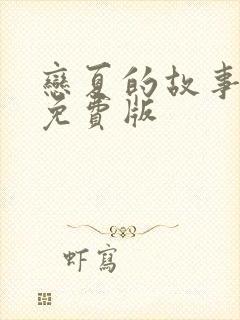 戀夏的故事
免費版
虾寫